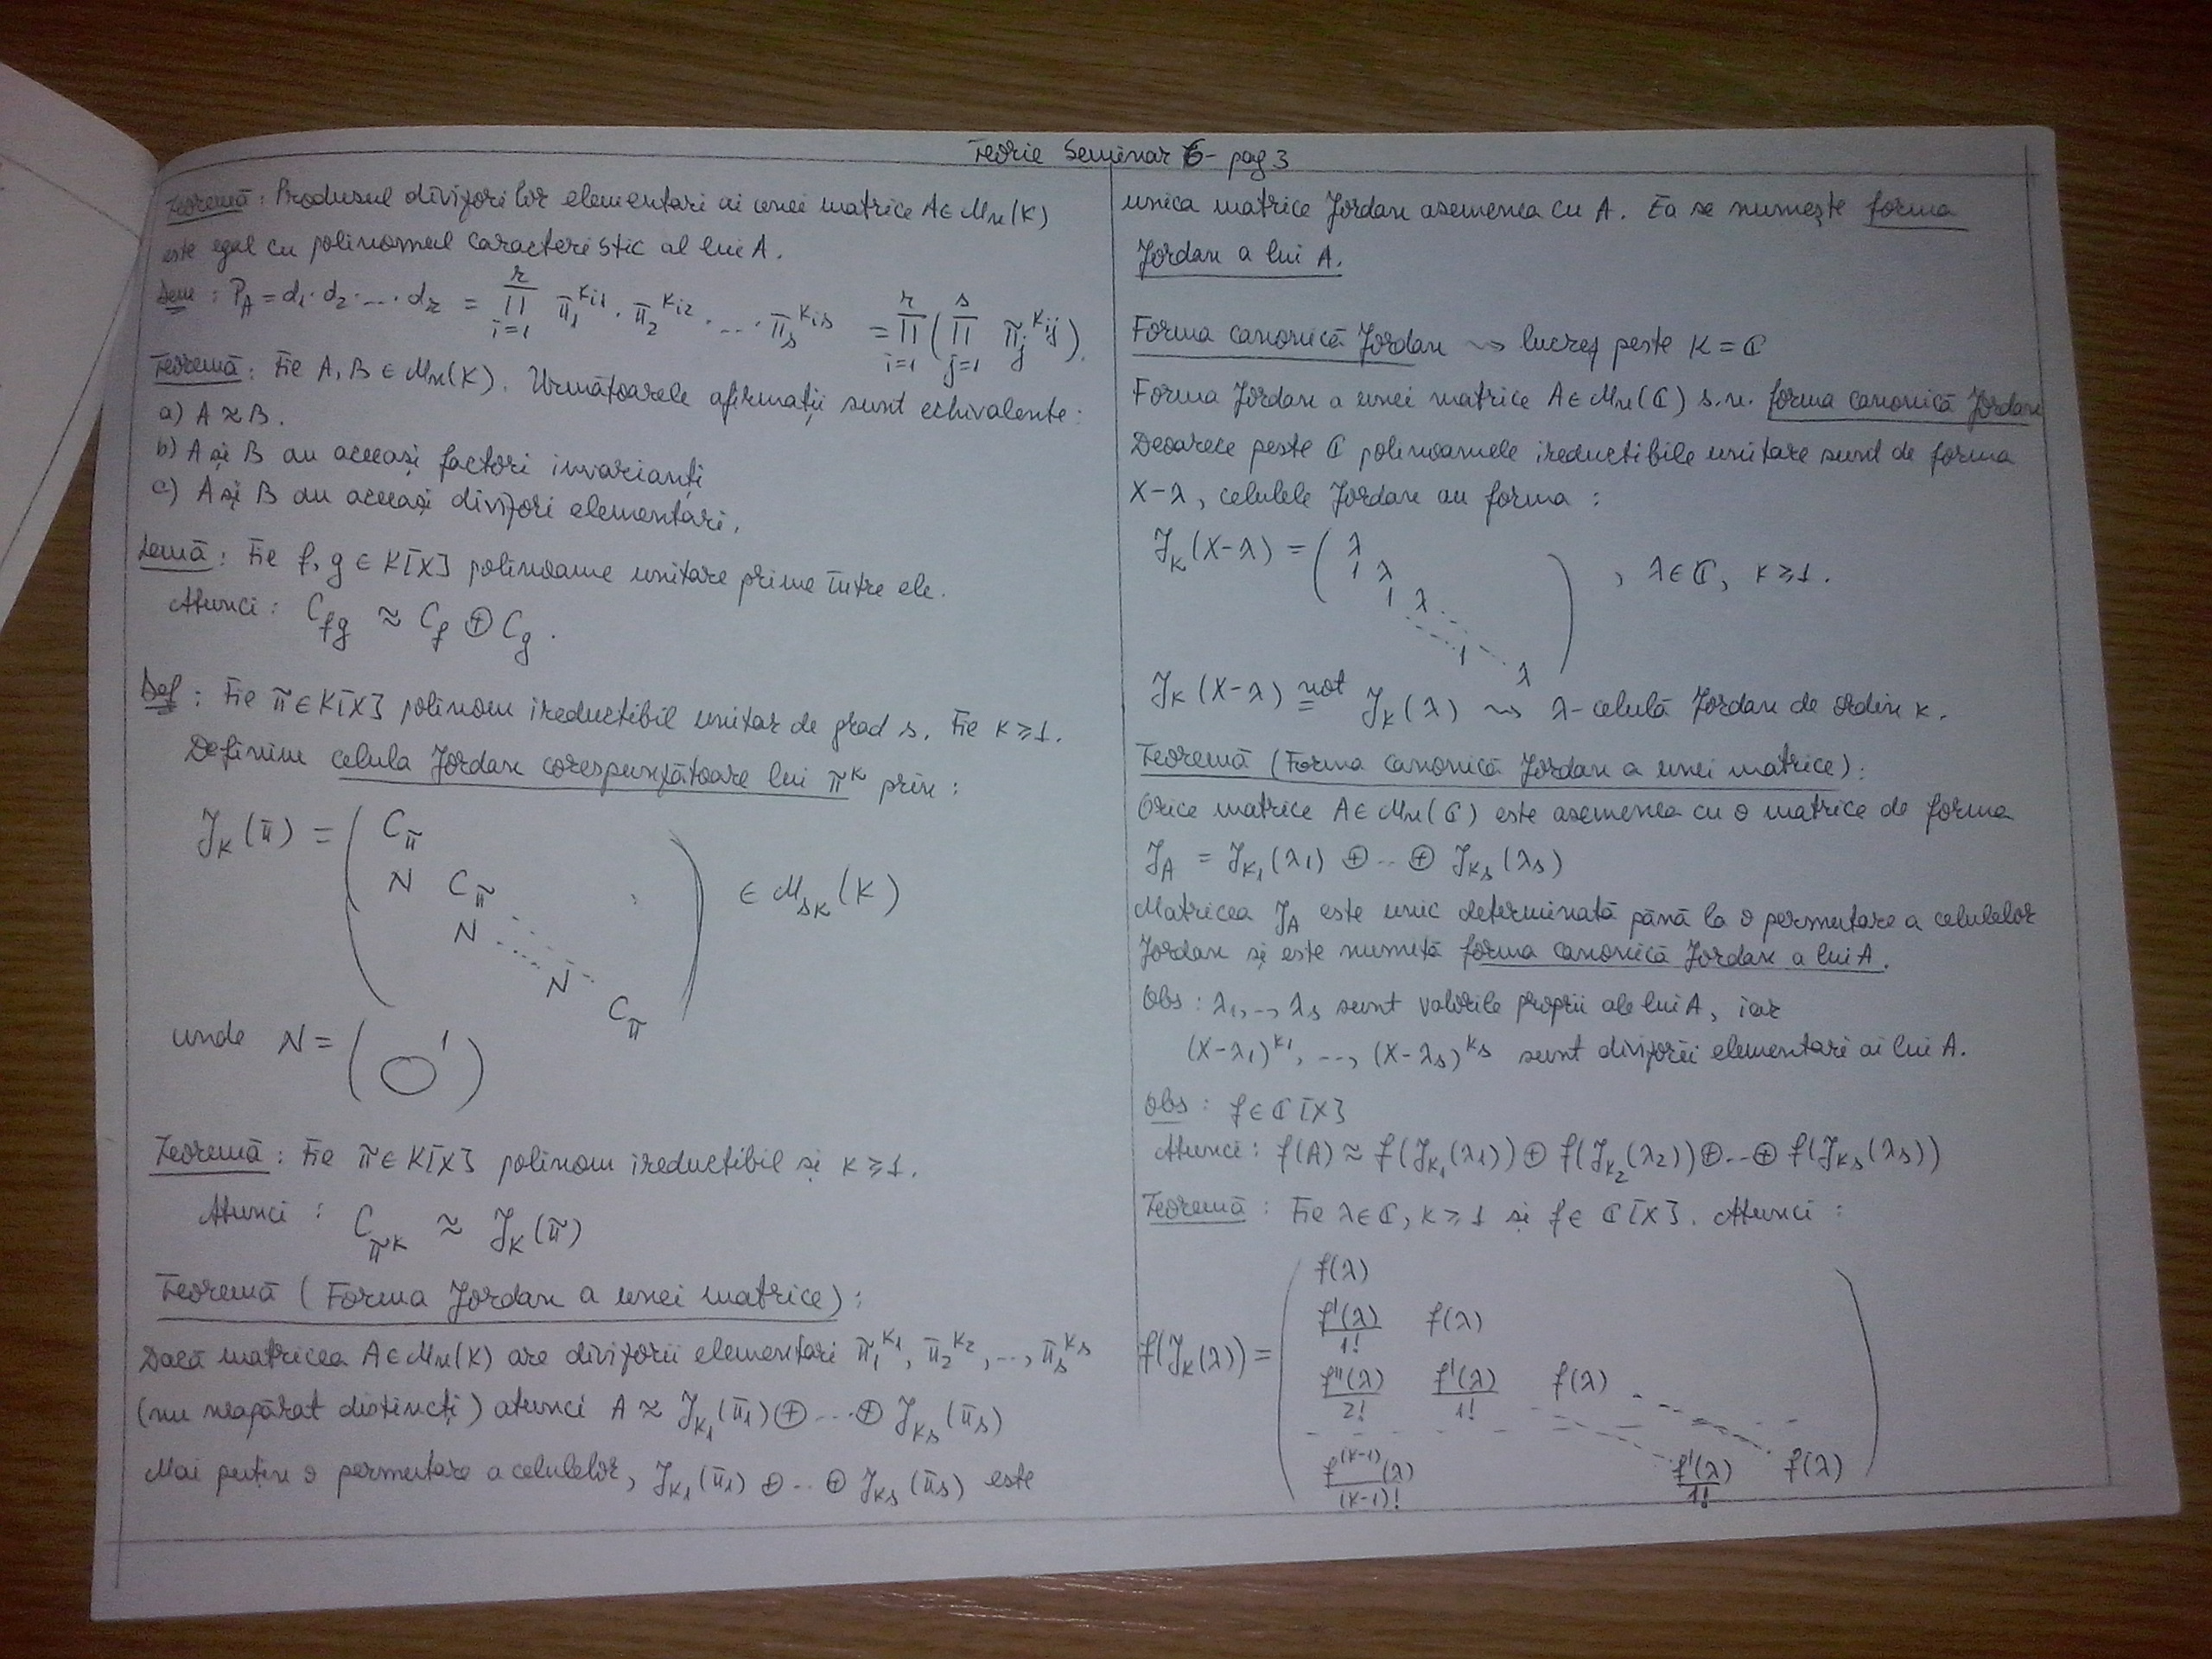 Teorie Seminar 6 - pag 3
Teoremă: Produsul divizorilor elementari ai unei matrice A∈Mn(K)
este egal cu polinomul caracteristic al lui A.
Dem: P_A = d₁·d₂·...·d_r = ∏_{i=1}^{r} π₁^{k_{i1}} · π₂^{k_{i2}} · ... · π_s^{k_{is}} = ∏_{i=1}^{r} (∏_{j=1}^{s} π_j^{k_{ij}}).
Teoremă: Fie A, B ∈ Mn(K). Următoarele afirmații sunt echivalente:
a) A ≈ B.
b) A și B au aceeași factori invarianți
c) A și B au aceeași divizori elementari.
Lemă: Fie f, g ∈ K[X] polinoame unitare prime între ele.
Atunci: C_{fg} ≈ C_f ⊕ C_g.
Def: Fie π∈K[X] polinom ireductibil unitar de grad s. Fie k≥1.
Definim celula Jordan corespunzătoare lui π^k prin:
J_k(π) = ( C_π
N C_π
N
N
C_π ) ∈ M_{sk}(K)
unde N = ( 0 1 )
Teoremă: Fie π∈K[X] polinom ireductibil și k≥1.
Atunci: C_{π^k} ≈ J_k(π)
Teoremă (Forma Jordan a unei matrice):
Dacă matricea A∈Mn(K) are divizorii elementari π₁^{k₁}, π₂^{k₂}, ..., π_s^{k_s}
(nu neapărat distincți) atunci A ≈ J_{k₁}(π₁) ⊕ ... ⊕ J_{k_s}(π_s)
Mai puțin o permutare a celulelor, J_{k₁}(π₁) ⊕ ... ⊕ J_{k_s}(π_s) este
unica matrice Jordan asemenea cu A. Ea se numește forma
Jordan a lui A.
Forma canonică Jordan ⇝ lucrez peste K = ℂ
Forma Jordan a unei matrice A∈Mn(ℂ) s.n. forma canonică Jordan
Deoarece peste ℂ polinoamele ireductibile unitare sunt de forma
X-λ, celulele Jordan au forma:
J_k(X-λ) = ( λ
1 λ
1 λ
1 λ ) , λ∈ℂ, k≥1.
J_k(X-λ) not= J_k(λ) ⇝ λ-celulă Jordan de ordin k.
Teoremă (Forma canonică Jordan a unei matrice):
Orice matrice A∈Mn(ℂ) este asemenea cu o matrice de forma
J_A = J_{k₁}(λ₁) ⊕ ... ⊕ J_{k_s}(λ_s)
Matricea J_A este unic determinată până la o permutare a celulelor
Jordan și este numită forma canonică Jordan a lui A.
Obs: λ₁, .., λ_s sunt valorile proprii ale lui A, iar
(X-λ₁)^{k₁}, ..., (X-λ_s)^{k_s} sunt divizorii elementari ai lui A.
Obs: f∈ℂ[X]
Atunci: f(A) ≈ f(J_{k₁}(λ₁)) ⊕ f(J_{k₂}(λ₂)) ⊕ ... ⊕ f(J_{k_s}(λ_s))
Teoremă: Fie λ∈ℂ, k≥1 și f∈ℂ[X]. Atunci:
f(J_k(λ)) = ( f(λ)
f'(λ)/1! f(λ)
f''(λ)/2! f'(λ)/1! f(λ)
f^{(k-1)}(λ)/(k-1)! f'(λ)/1! f(λ) )